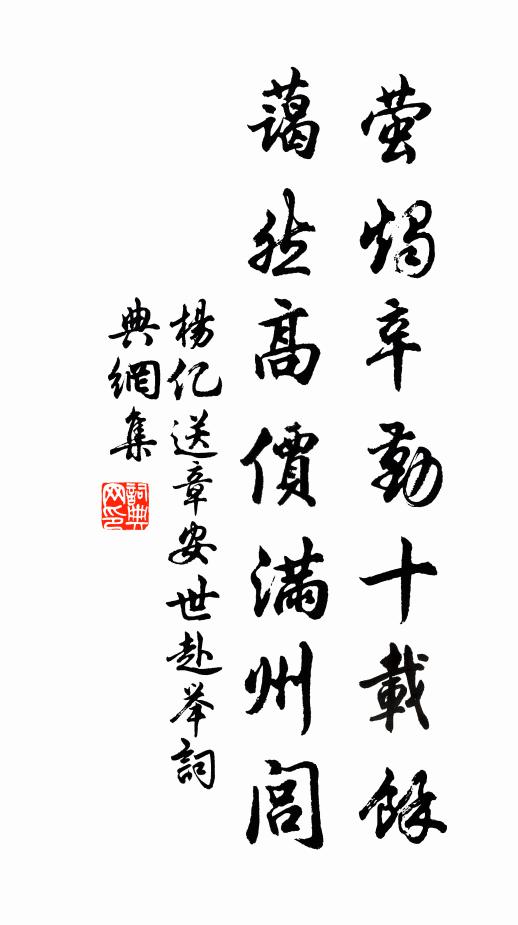 萤燭辛勤十載餘
藹然高價滿州閭
楊億送章安世赴举詞
典網集
詞典
网印